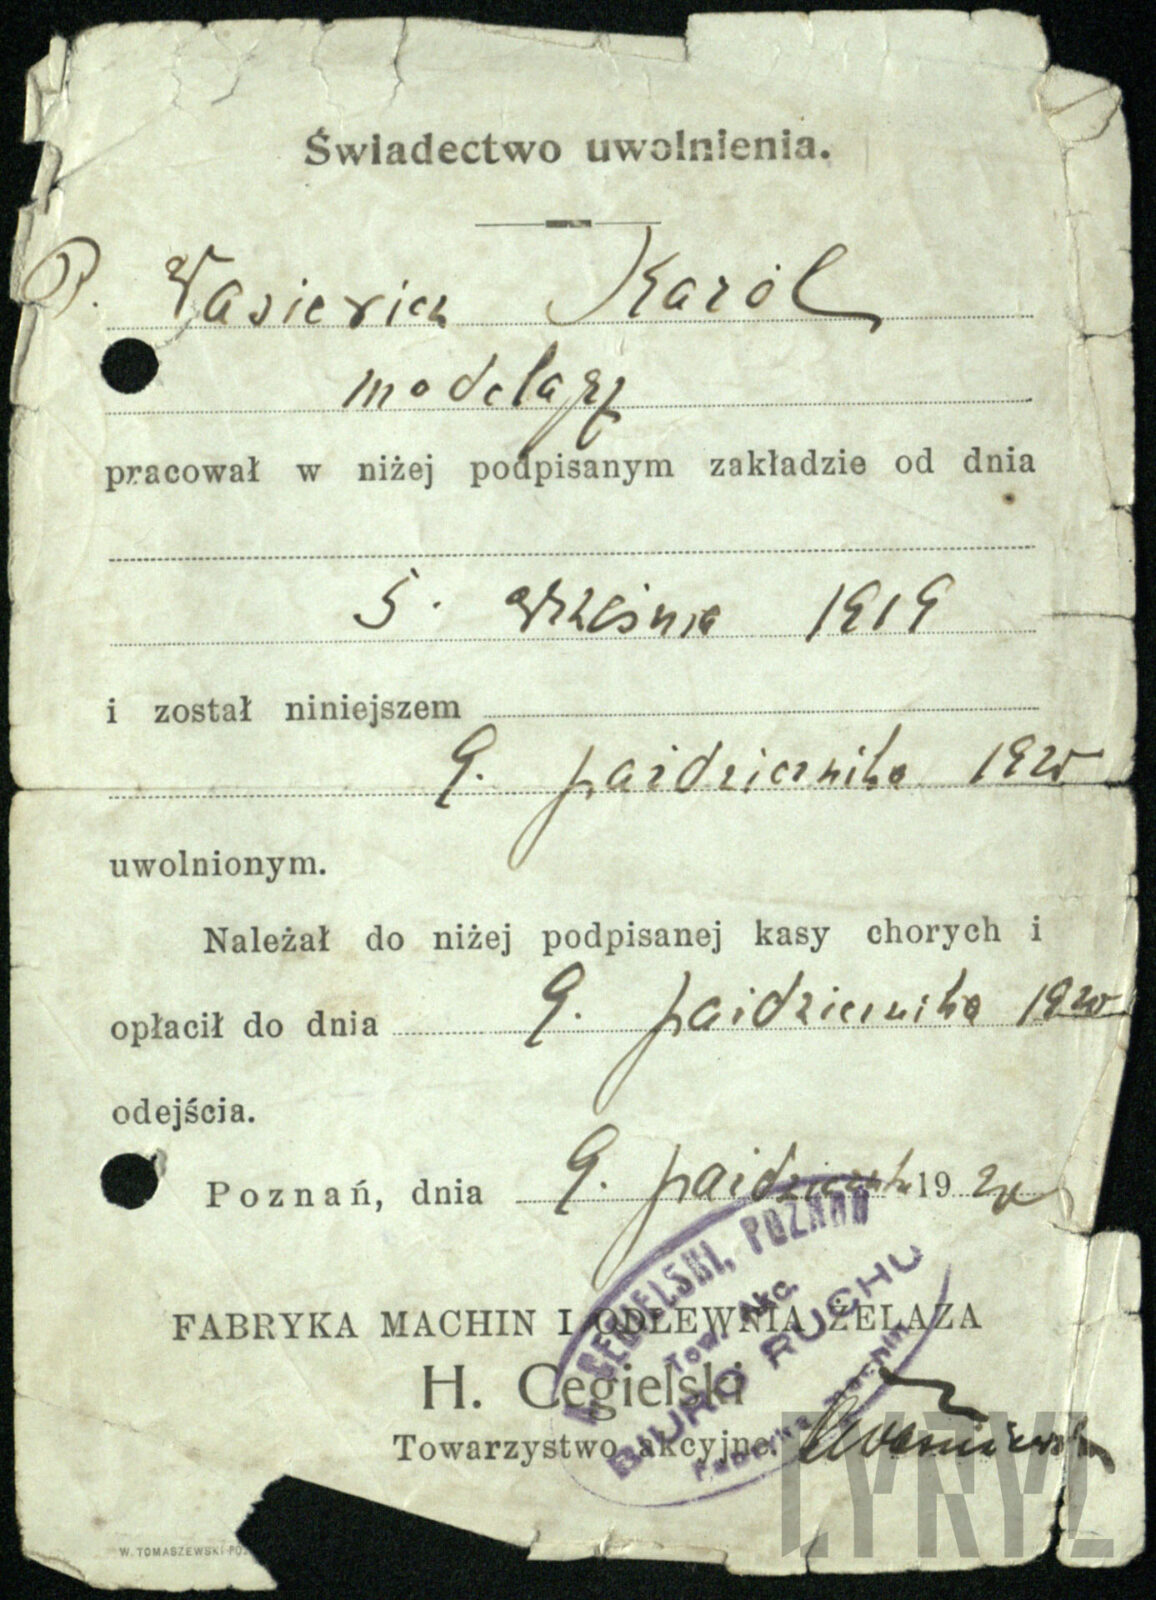 Świadectwo uwolnienia.
P. Wasiericz Karól
modelarz
pracował w niżej podpisanym zakładzie od dnia
5. września 1919
i został niniejszem
9. października 1920
uwolnionym.
Należał do niżej podpisanej kasy chorych i
opłacił do dnia 9. października 1920
odejścia.
Poznań, dnia 9. paździer. 1920
FABRYKA MACHIN I ODLEWNIA ŻELAZA
H. Cegielski
Towarzystwo akcyjne
H. CEGIELSKI, POZNAŃ
Tow. Akc.
BIURO RUCHU
Fabryka Machin
CYRYL
W. TOMASZEWSKI PO